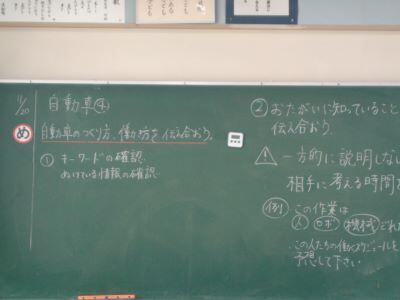 11/20
自動車④
め
自動車のつくり方、働く方を伝え合おう。
① キーワードの確認
ぬけている情報の確認
② おたがいに知っていること
伝え合おう
一方的に説明しない
相手に考える時間を
例 この作業は
人 ロボ 機械 どれ
この人たちの働くスケジュールを
予想して下さい